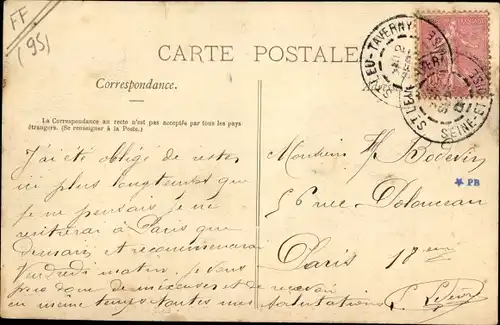 FF
(95)
CARTE POSTALE
Correspondance.
La Correspondance au recto n'est pas acceptée par tous les pays
étrangers. (Se renseigner à la Poste.)
ST LEU-TAVERNY
SEINE-ET-
J'ai été obligé de rester
ici plus longtemps que
je ne pensais, je ne
rentrerai à Paris que
demain et recommencerai
Vendredi matin. je vous
prie donc de m'excuser et de recevoir
en même temps toutes mes salutations
Monsieur H Bodevin
56 rue Dulaneau
Paris 18 eme
★ PB